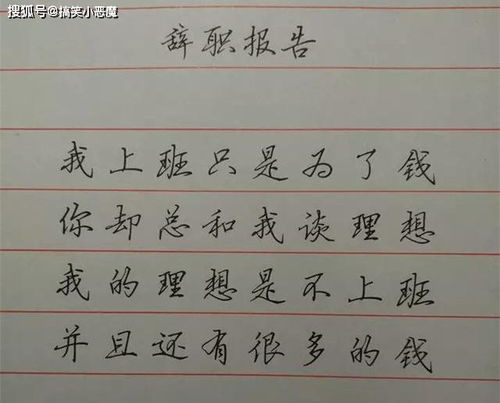 搜狐号@搞笑小恶魔
辞职报告
我上班只是为了钱
你却总和我谈理想
我的理想是不上班
并且还有很多的钱